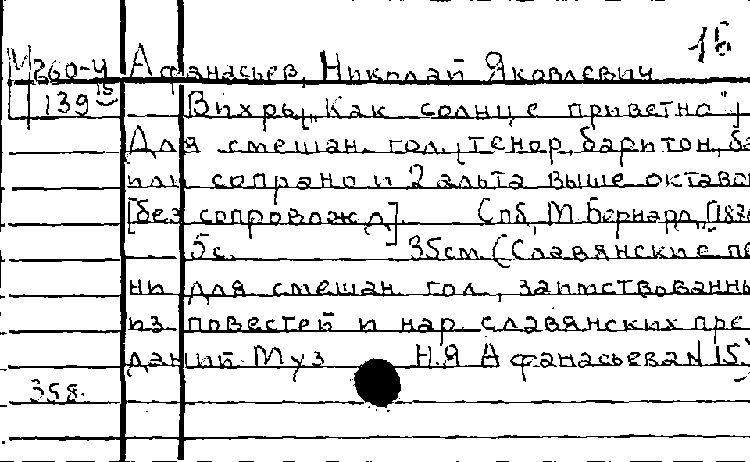 16
М260-4 Афанасьев, Николай Яковлевич
139 15 Вихры „Как солнце приветно"
Для смешан. гол. [тенор, баритон, ба
или сопрано и 2 альта выше октавой
[без сопровожд.] Спб, М. Бернард, [18
5с. 35см. (Славянские пе
ни для смешан. гол., заимствованны
из повестей и нар. славянских пре
даний. Муз Н.Я Афанасьева N 15)
358.